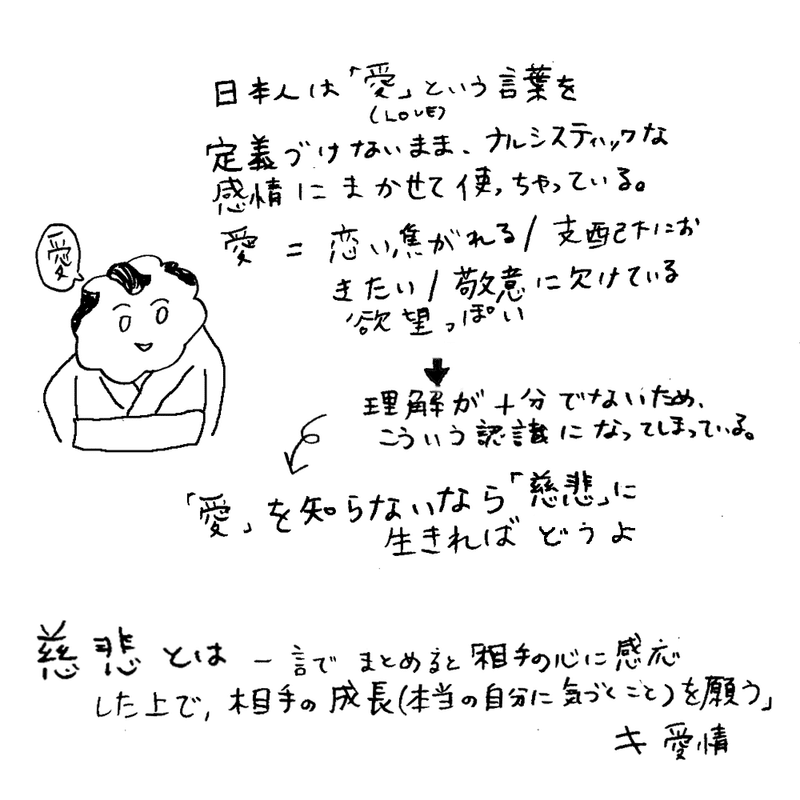 日本人は「愛」という言葉を
(LOVE)
定義づけないまま、ナルシスティックな
感情にまかせて使っちゃっている。
愛
愛 = 恋い焦がれる/支配下にお
きたい/敬意に欠けている
欲望っぽい
理解が十分でないため、
こういう認識になってしまっている。
「愛」を知らないなら「慈悲」に
生きればどうよ
慈悲とは 一言でまとめると「相手の心に感応
した上で、相手の成長(本当の自分に気づくこと)を願う」
キ 愛情